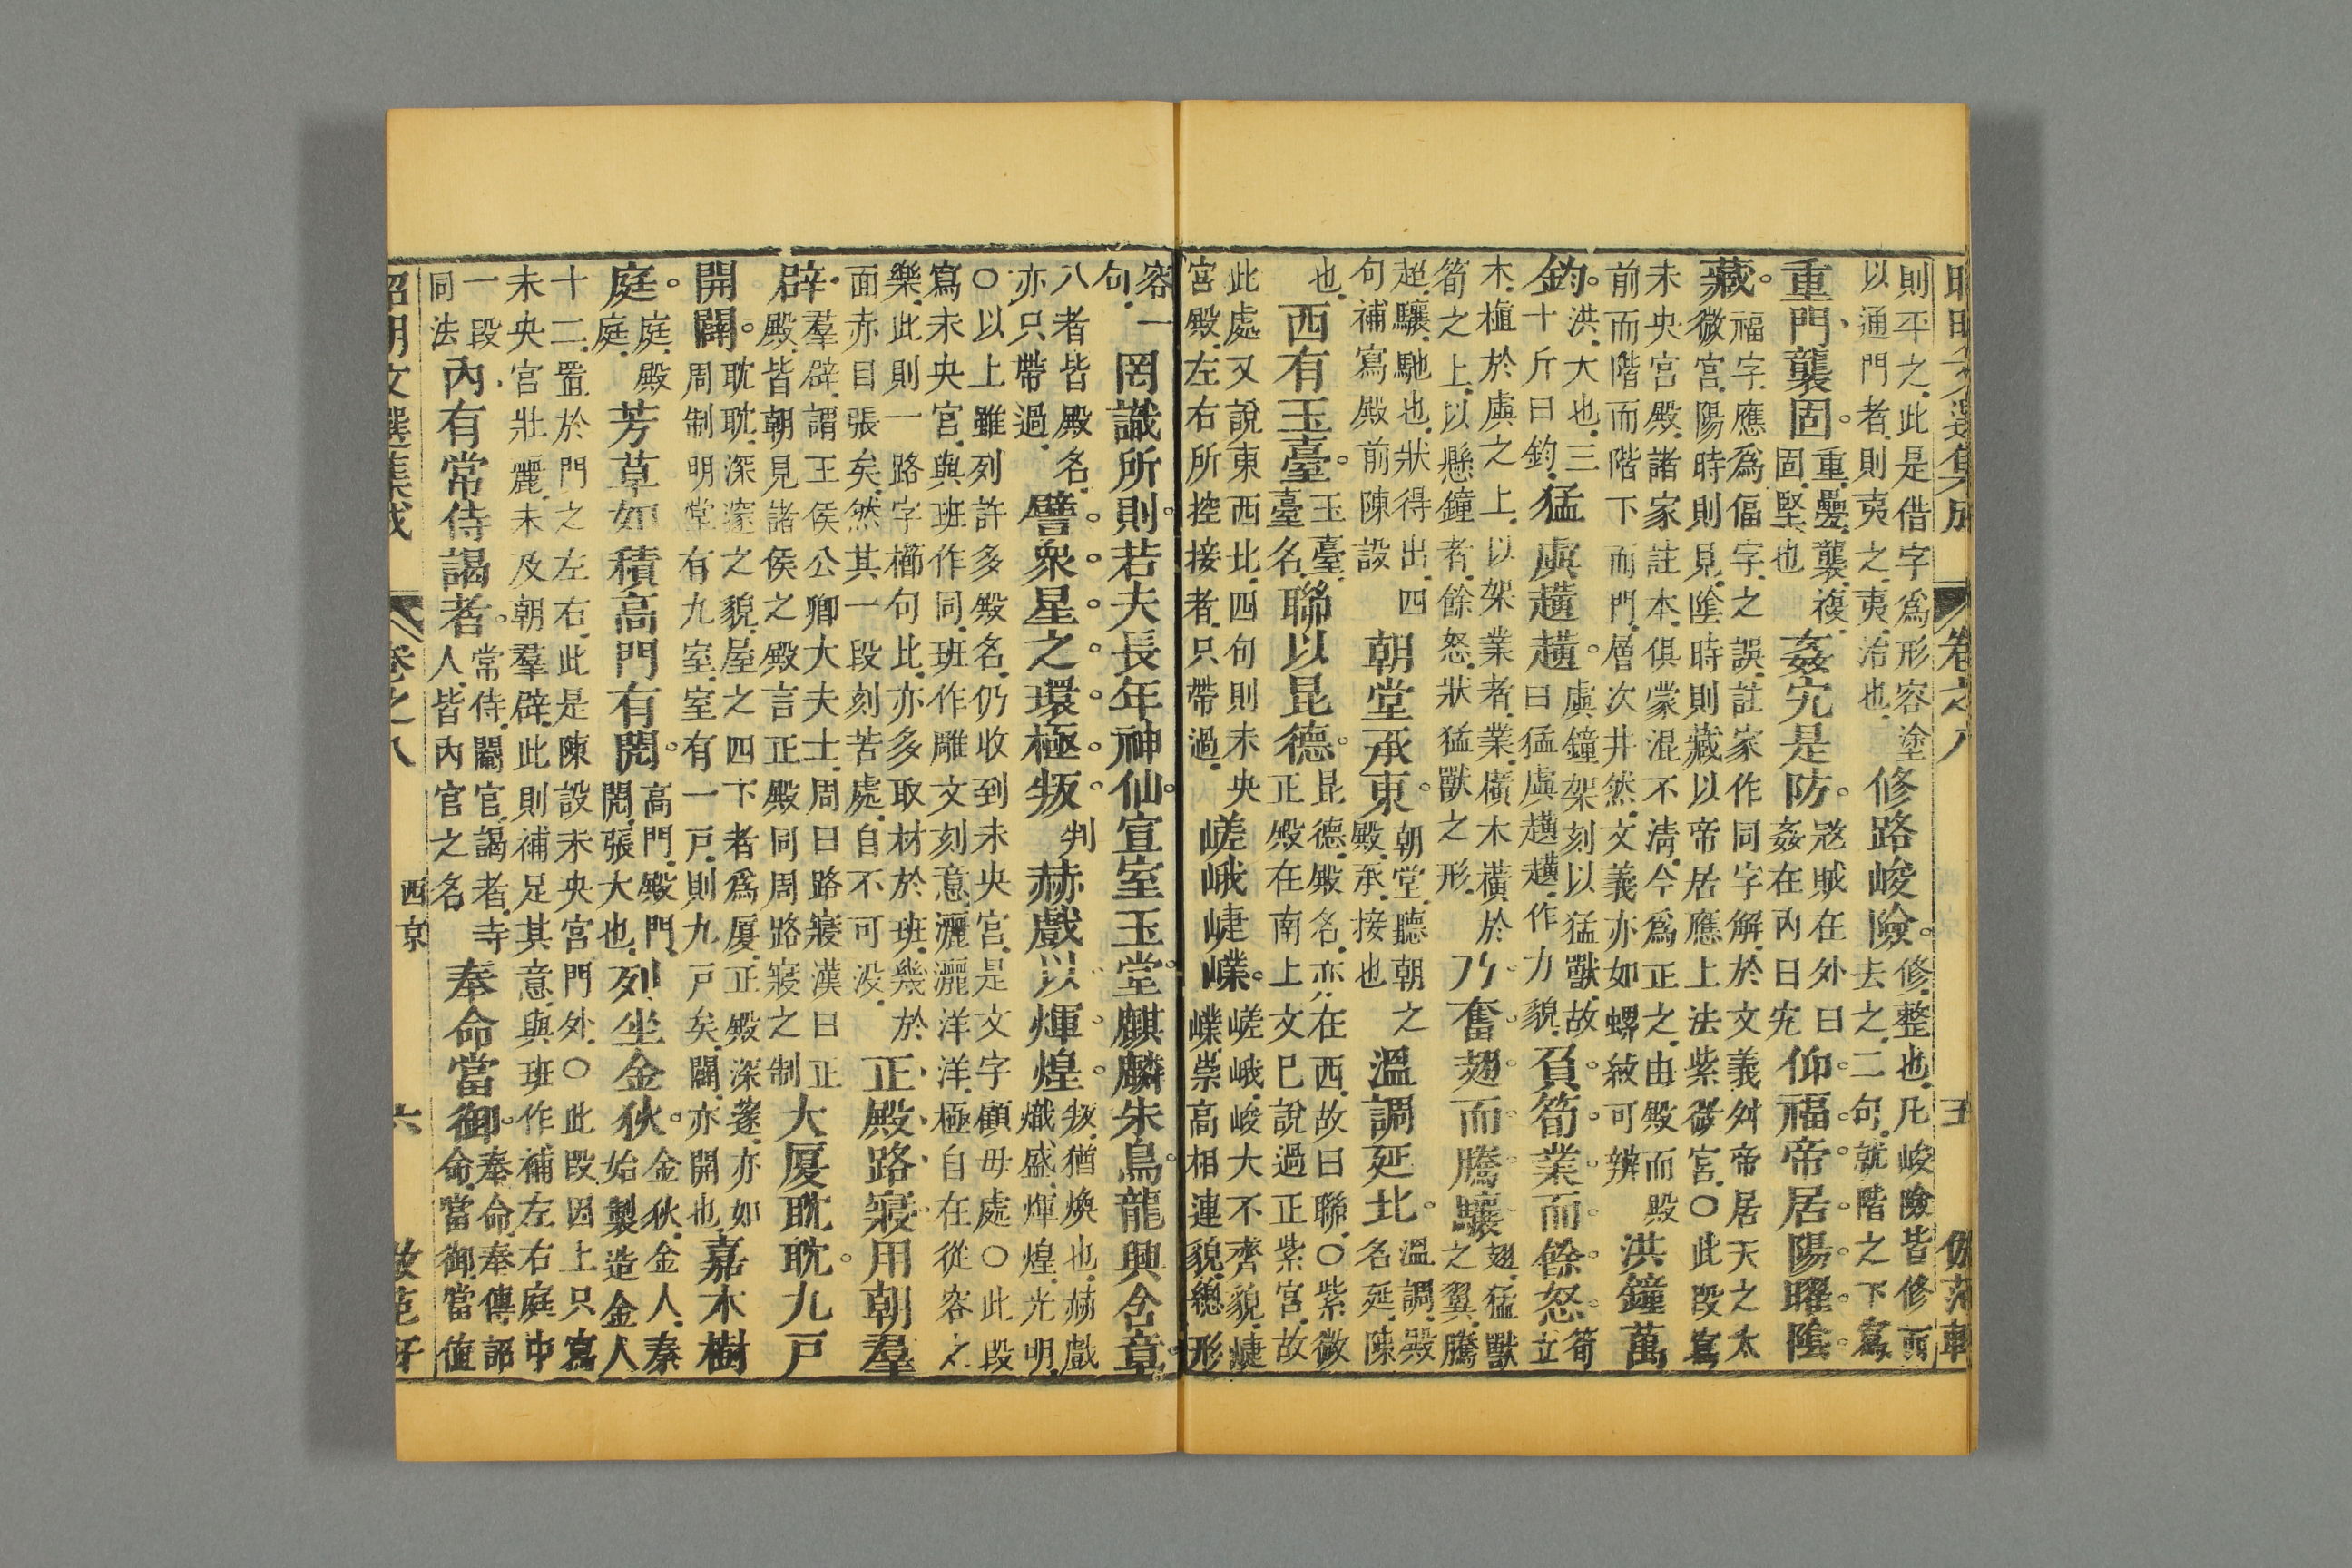 昭明文選集成 卷之八 五 倣范軒
則平之此是借字為形容塗以通門者則夷之夷治也修路峻險修整也凡峻險皆修而去之二句就階之下寫
重門襲固重疊襲複固堅也姦宄是防寇賊在外曰姦在內曰宄仰福帝居陽曜陰
藏福字應為偪字之誤註家作同字解於文義舛帝居天之太微宮陽時則見陰時則藏以帝居應上法紫微宮○此段寫
未央宮殿諸家註本俱蒙混不清今為正之由殿而殿前而階而階下而門層次井然文義亦如螺紋可辨洪鐘萬
鈞洪大也三十斤曰鈞猛虡趪趪虡鐘架刻以猛獸故曰猛虡趪趪作力貌負筍業而餘怒筍立
木植於虡之上以架業者業廣木橫於筍之上以懸鐘者餘怒狀猛獸之形乃奮翅而騰驤翅猛獸之翼騰
超驤馳也狀得出四句補寫殿前陳設朝堂承東朝堂聽朝之殿承接也溫調延北溫調殿名延陳
也西有玉臺玉臺臺名聯以昆德昆德殿名亦在西故曰聯○紫微正殿在南上文已說過正紫宮故
此處又說東西北四句則未央宮殿左右所控接者只帶過嵯峨崨嶫嵯峨峻大不齊貌崨嶫崇高相連貌總形
容一句罔識所則若夫長年神仙宣室玉堂麒麟朱鳥龍興含章
八者皆殿名亦只帶過譬眾星之環極叛判赫戲以煇煌叛猶煥也赫戲熾盛煇煌光明
○以上雖列許多殿名仍收到未央宮是文字顧母處○此段寫未央宮與班作同班作雕文刻意灑灑洋洋極自在從容之
樂此則一路字櫛句比亦多取材於班幾於面赤目張矣然其一段刻苦處自不可沒正殿路寢用朝羣
辟羣辟謂王侯公卿大夫士周曰路寢漢曰正殿皆朝見諸侯之殿言正殿同周路寢之制大厦耽耽九戸
開闢耽耽深邃之貌屋之四下者為厦正殿深邃亦如周制明堂有九室室有一戸則九戸矣闢亦開也嘉木樹
庭庭殿庭芳草如積高門有閌高門殿門閌張大也列坐金狄金狄金人秦始製造金人
十二置於門之左右此是陳設未央宮門外○此段因上只寫未央宮壯麗未及朝羣辟此則補足其意與班作補左右庭中
一段同法內有常侍謁者常侍閹官謁者寺人皆內官之名奉命當御奉命奉傳詔命當御當值
昭明文選集成 卷之八 西京 六 倣范軒